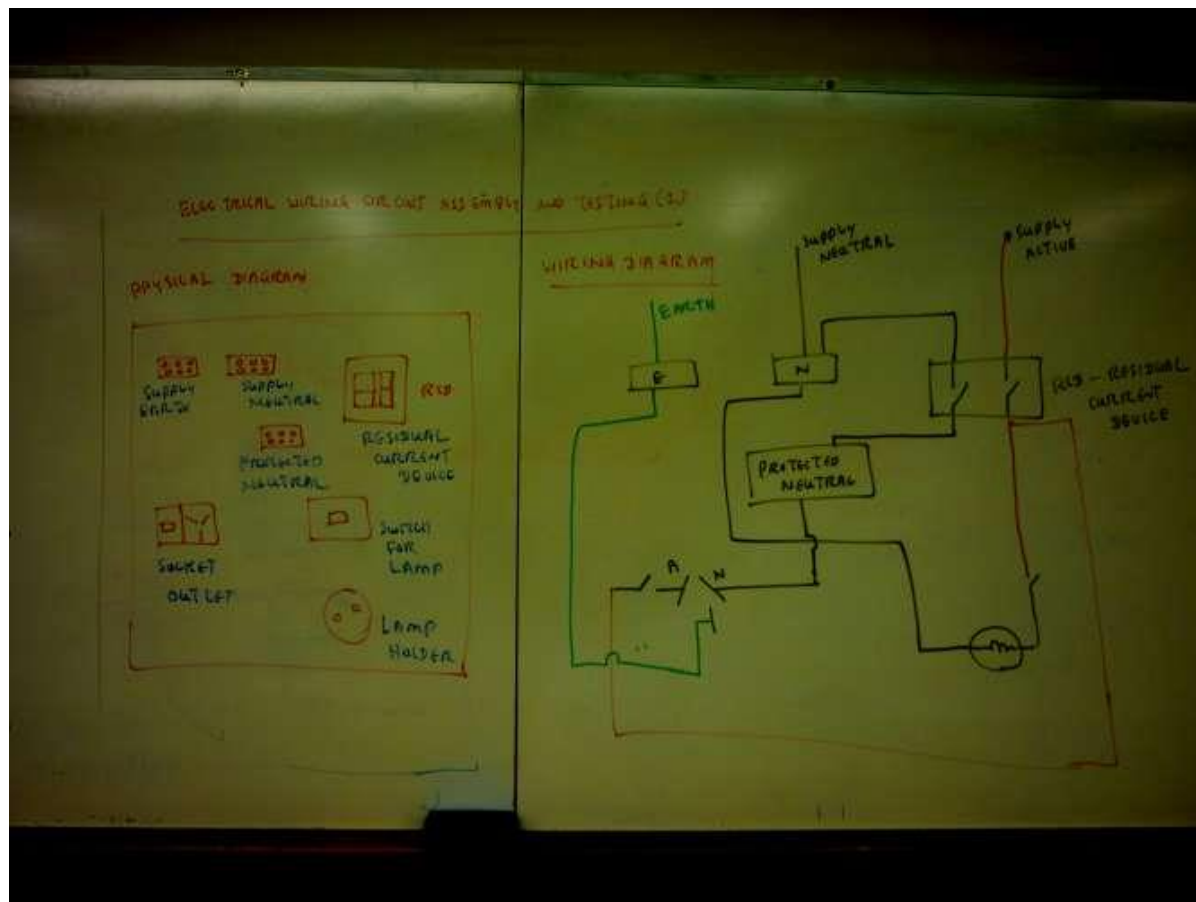 ELECTRICAL WIRING CIRCUIT ASSEMBLY AND TESTING (1)
PHYSICAL DIAGRAM
SUPPLY
EARTH
SUPPLY
NEUTRAL
RCD
RESIDUAL
CURRENT
DEVICE
PROTECTED
NEUTRAL
SOCKET
OUTLET
SWITCH
FOR
LAMP
LAMP
HOLDER
WIRING DIAGRAM
EARTH
SUPPLY
NEUTRAL
SUPPLY
ACTIVE
E
N
RCD - RESIDUAL
CURRENT
DEVICE
PROTECTED
NEUTRAL
A
N